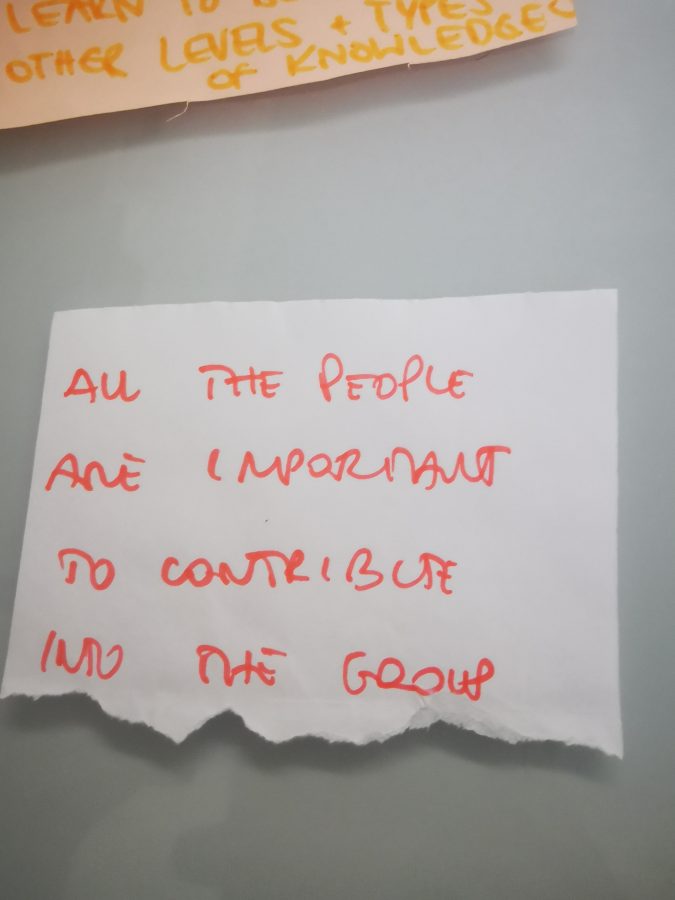 LEARN TO
OTHER LEVELS + TYPES
OF KNOWLEDGE
ALL THE PEOPLE
ARE IMPORTANT
TO CONTRIBUTE
INTO THE GROUP